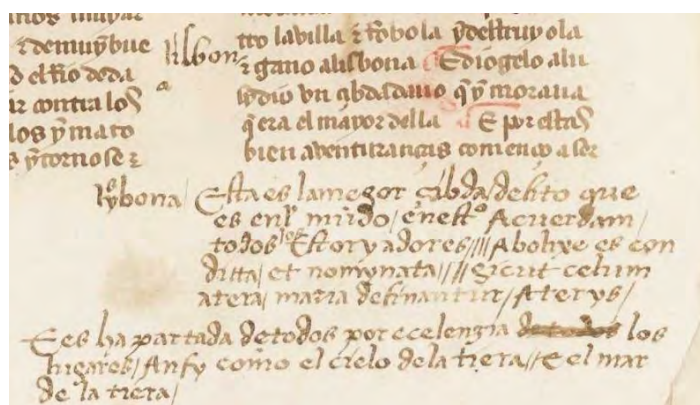 τ demuy bue
d el Rio deda
ar contra los
los y mato
s y torno se τ
lisbon
a
tro la villa τ Robola y destruyola
τ gano alisbona E diogelo alu
vn q y moraua
q era el mayor della E por estas
bien aventuranças començo a ser
lysbona / Esta es la megor çibda / de sito que
es enl mũdo / e nestº Acuerdam /
todos los Estoryadores //// A bolixe es con
ditta / et nomynata //// sicut celum
atera / maria definantur / Aterys /
E es ha partada de todos por ecelenzia de todos los
lugares / Ansy como el cielo de la tiera // E el mar
de la tiera /